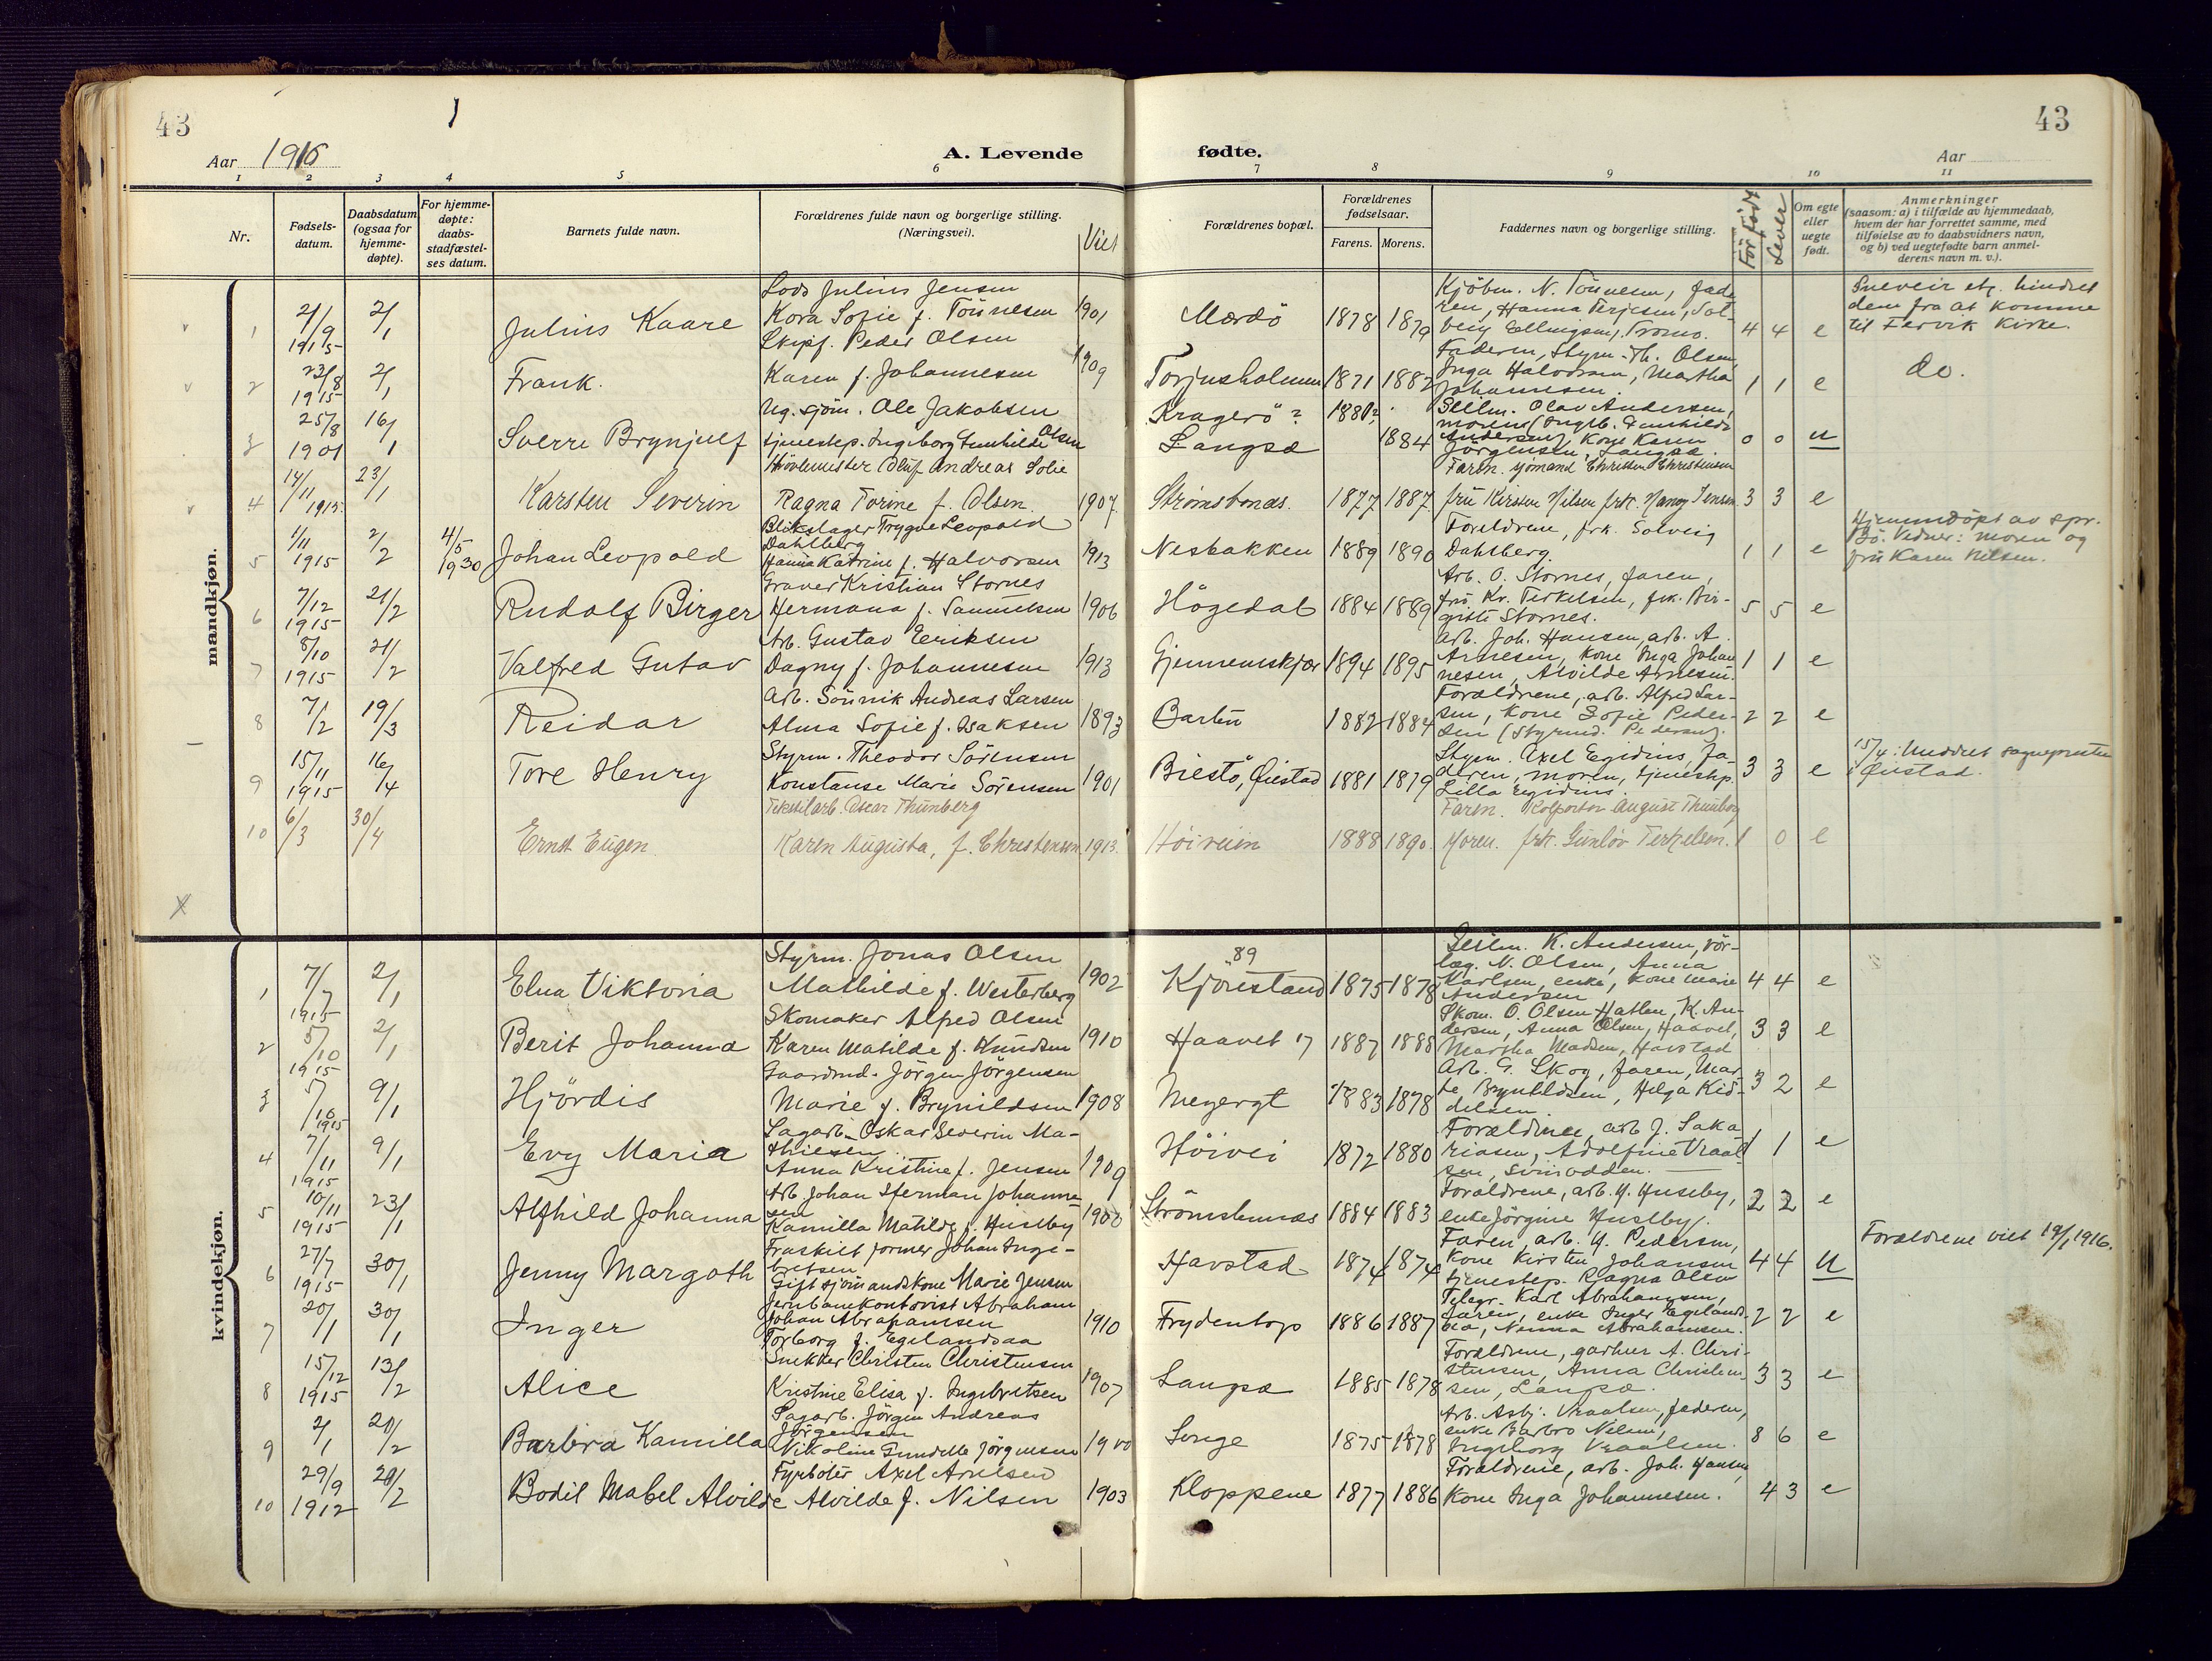 43
43
Aar 1916
A. Levende fødte.
Aar
1 2 3 4 5 6 7 8 9 10 11
Nr.
Fødsels-
datum.
Daabsdatum
(ogsaa for
hjemme-
døpte).
For hjemme-
døpte:
daabs-
stadfæstel-
ses datum.
Barnets fulde navn.
Forældrenes fulde navn og borgerlige stilling.
(Næringsvei).
Viet
Forældrenes bopæl.
Forældrenes
fødselsaar.
Farens. Morens.
Faddernes navn og borgerlige stilling.
Før født
Lever
Om egte
eller
uegte
født.
Anmerkninger
(saasom: a) i tilfælde av hjemmedaab,
hvem der har forrettet samme, med
tilføielse av to daabsvidners navn,
og b) ved uegtefødte barn anmel-
derens navn m. v.).
mandkjøn.
1 21/9 1915 2/1 Julius Kaare
Lods Julius Jensen
Kora Sofie f. Tönnesen 1901
Mærdö 1878 1879
Kjöbm. N. Tönnesen, fade-
ren, Hanna Terjesen, Sol-
veig Ellingsen, Tromö. 4 4 e
Sneveir etc. hindret
dem fra at komme
til Fervik Kirke.
2 23/8 1915 2/1 Frank.
Skipf. Peder Olsen
Karen f. Johannesen 1909
Torjusholmen 1871 1882
Faderen, Styrm. Th. Olsen,
Inga Halvorsen, Martha
Johannesen. 1 1 e
do.
3 25/8 1901 16/1 Sverre Brynjulf
Ug. sjöm. Ole Jakobsen
tjenestep. Ingeborg Gunhilde Olsen
Kragerö? 1881?
Langsæ 1884
Seilm. Olav Andersen,
moren (Ingeb. Gunhilde
Andersen), Kone Karen
Jörgensen, Langsæ. 0 0 u
4 14/11 1915 23/1 Karsten Severin
Hövlemester Oluf Andreas Solie
Ragna Torine f. Olsen. 1907.
Strömsbonæs. 1877 1887
Faren. sjömand Christen Christensen
fru Kirsten Nilsen frk. Nanny Jensen 3 3 e
5 1/11 1915 2/2 4/5 1930 Johan Leopold
Blikslager Trygve Leopold
Dahlberg
Hanna Katrine f. Halvorsen 1913
Nesbakken 1889 1890
Foreldrene, frk. Solveig
Dahlberg. 1 1 e
Hjemmedöpt av spr.
Bö. Vidner: moren og
fru Karen Nilsen.
6 7/12 1915 21/2 Rudolf Birger
Graver Kristian Stornes
Hermana f. Samuelsen 1906
Högedal 1884 1889
Arb. O. Stornes, faren,
fru Kr. Terkelsen, frk. Bir-
gitte Stornes. 5 5 e
7 8/10 1915 21/2 Valfred Gutav
Arb. Gustav Eeriksen
Dagny f. Johannesen 1913
Gjennemskjær 1894 1895
Arb. Joh. Hansen, arb. A.
Arnesen, Kone Inga Johan
nesen, Alvilde Arnesen. 1 1 e
8 7/2 19/3 Reidar
Arb. Sönnik Andreas Larsen
Alma Sofie f. Isaksen 1893
Barbu 1882 1884
Forældrene, arb. Alfred Lar-
sen, Kone Sofie Peder-
sen (Styrmd. Pedersen). 2 2 e
9 15/11 1915 16/4 Tore Henry
Styrm. Theodor Sörensen
Konstanse Marie Sörensen 1901
Biestö, Öiestad 1881 1879
Styrm. Axel Egidius, fa-
deren, moren, tjenestep.
Lilla Egidius. 3 3 e
15/4: Meddelt sognepresten
i Öiestad.
10 6/3 30/4 Ernst Eugen.
Tekstilarb. Oscar Thunberg
Karen Augusta, f. Christensen 1913.
Höiveien 1888 1890.
Faren. Kolportør August Thunberg
Moren. frk. Gunløv Terkelsen. 1 0 e
kvindekjøn.
1 7/7 1915 2/1 Elna Viktoria
Styrm. Jonas Olsen
Mathilde f. Westerberg 1902
89
Kjörestand 1875 1878
Seilm. K. Andersen, rör-
læg. N. Olsen, Anna
Karlsen, enke, kone Marie
Andersen 4 4 e
2 5/10 1915 2/1 Berit Johanna
Skomaker Alfred Olsen
Karen Matilde f. Knudsen 1910
Haavet 17 1887 1888
Skom. O. Olsen Hatlen, K. An-
dersen, Anna Olsen, Haavet,
Martha Madsen, Havstad 3 3 e
3 5/10 1915 9/1 Hjördis
Gaardmd. Jörgen Jörgensen
Marie f. Brynildsen 1908
Meyergt 1883 1878
Arb. G. Skog, faren, Mar-
te Brynildsen, Helga Kid-
delsen. 3 2 e
4 7/11 1915 9/1 Evy Maria
Sagarb. Oskar Severin Ma-
thiesen
Anna Kristine f. Jensen 1909
Höivei 1872 1880
Forældrene, arb J. Saka
riasen, Adolfine Vraal-
sen, Svinodden. 1 1 e
5 10/11 1915 23/1 Alfhild Johanna
Arb. Johan Herman Johanne
sen
Kamilla Matilde f. Huseby 1908
Strömsbunæs 1884 1883
Forældrene, arb. H. Huseby,
enke Jörgine Huseby. 2 2 e
6 27/7 1915 30/1 Jenny Margoth
Fraskilt former Johan Inge-
bretsen
Gift sjömandskone Marie Jensen
Havstad 1874 1874
Faren, arb. H. Pedersen,
Kone Kirsten Johansen
tjenestep. Ragna Olsen 4 4 u
Forældrene viet 19/1 1916.
7 20/1 30/1 Inger
Jernbanekontorist Abraham
Johan Abrahamsen
Torborg f. Egelandsaa 1910
Frydentop 1886 1887
Telegr. Karl Abrahamsen,
faren, enke Inger Egelands-
aa, Nanna Abrahamsen. 2 2 e
8 15/12 1915 13/2 Alice
Snekker Christen Christensen
Kristine Elisa f. Ingebretsen 1907
Langsæ 1885 1878
Forældrene, gartner A. Chri-
stensen, Anna Christen-
sen, Langsæ. 3 3 e
9 2/1 20/2 Barbra Kamilla
Sagarb. Jörgen Andreas
Jörgensen
Nikoline Gundelle Jörgensen 1900
Songe 1875 1878
Arb. Asbj. Vraalsen, faderen,
enke Barbro Nilsen,
Ingeborg Vraalsen. 8 6 e
10 29/9 1912 20/2 Bodil Mabel Alvilde
Fyrböter Axel Arnesen
Alvilde f. Nilsen 1903
Kloppene 1877 1886
Forældrene, arb. Joh. Hansen,
Kone Inga Johannesen. 4 3 e